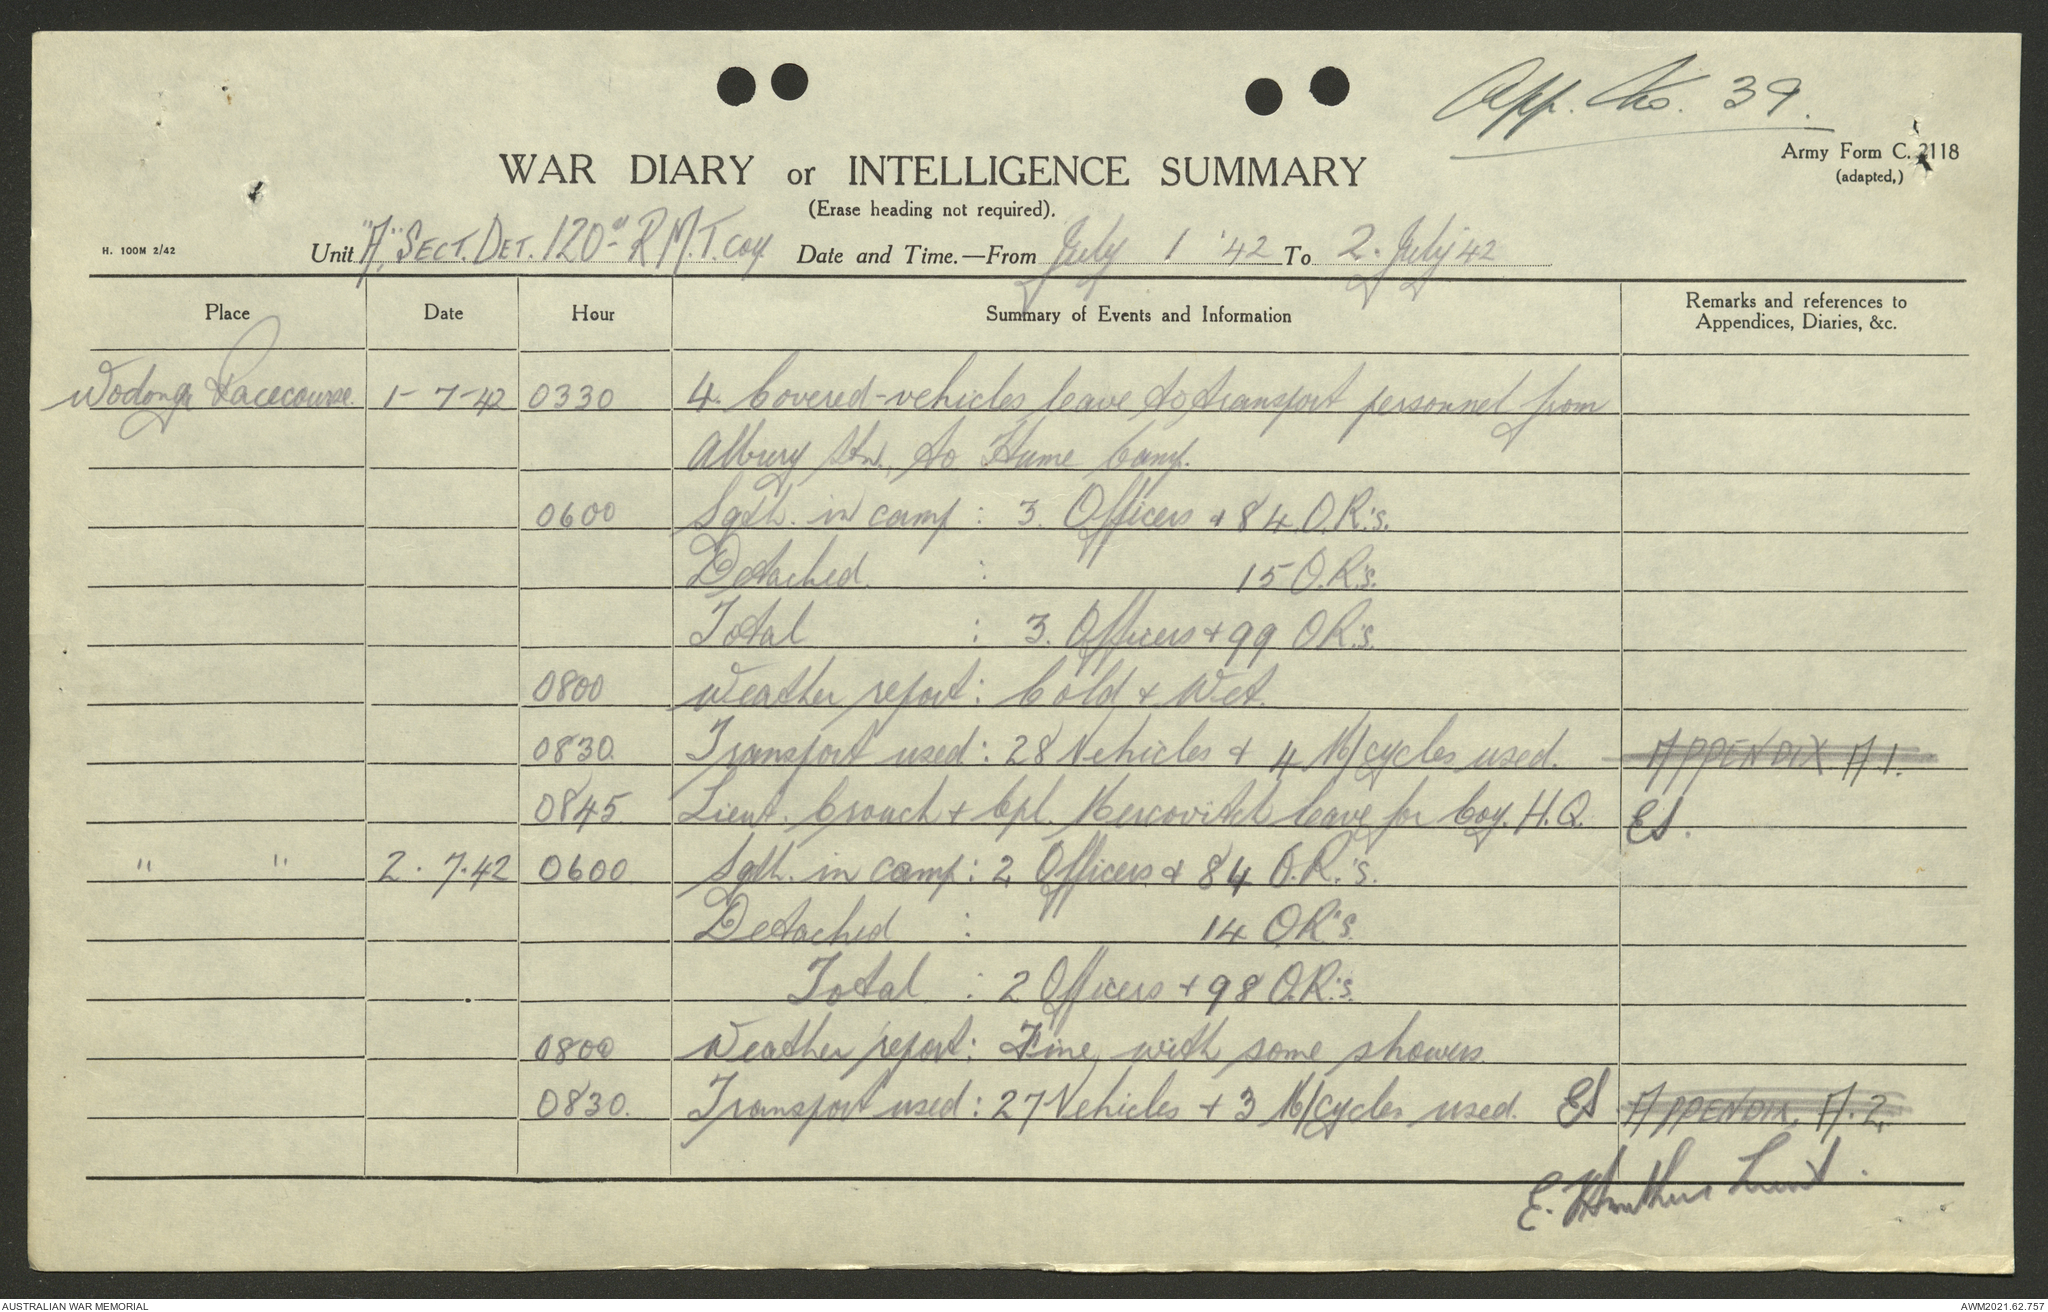 App. No. 39.
Army Form C. 2118
(adapted,)
WAR DIARY or INTELLIGENCE SUMMARY
(Erase heading not required).
H. 100M 2/42
Unit "A" SECT. DET. 120th R M.T. Coy. Date and Time.—From July 1 '42 To 2. July 42
Place Date Hour Summary of Events and Information Remarks and references to Appendices, Diaries, &c.
Wodonga Racecourse. 1-7-42 0330 4. Covered-vehicles leave to transport personnel from
Albury Stn. to Hume Camp.
0600 Sgth. in camp : 3. Officers + 84 O.R.'s.
Detached. : 15 O.R.'s.
Total : 3. Officers + 99 OR's.
0800 Weather report: Cold + Wet.
0830. Transport used: 28 Vehicles + 4 M/cycles used. APPENDIX A.1.
0845. Lieut. Crouch + Cpl. Mercovitch leave for Coy. H.Q. ES.
" " 2.7.42 0600 Sgth. in camp: 2 Officers + 84 O.R.'s.
Detached : 14 O.R's.
Total : 2 Officers + 98 O.R.'s.
0800 Weather report: Fine, with some showers.
0830. Transport used: 27 Vehicles + 3 M/cycles used. ES APPENDIX. A.2.
E. Lieut.
AUSTRALIAN WAR MEMORIAL
AWM2021.62.757